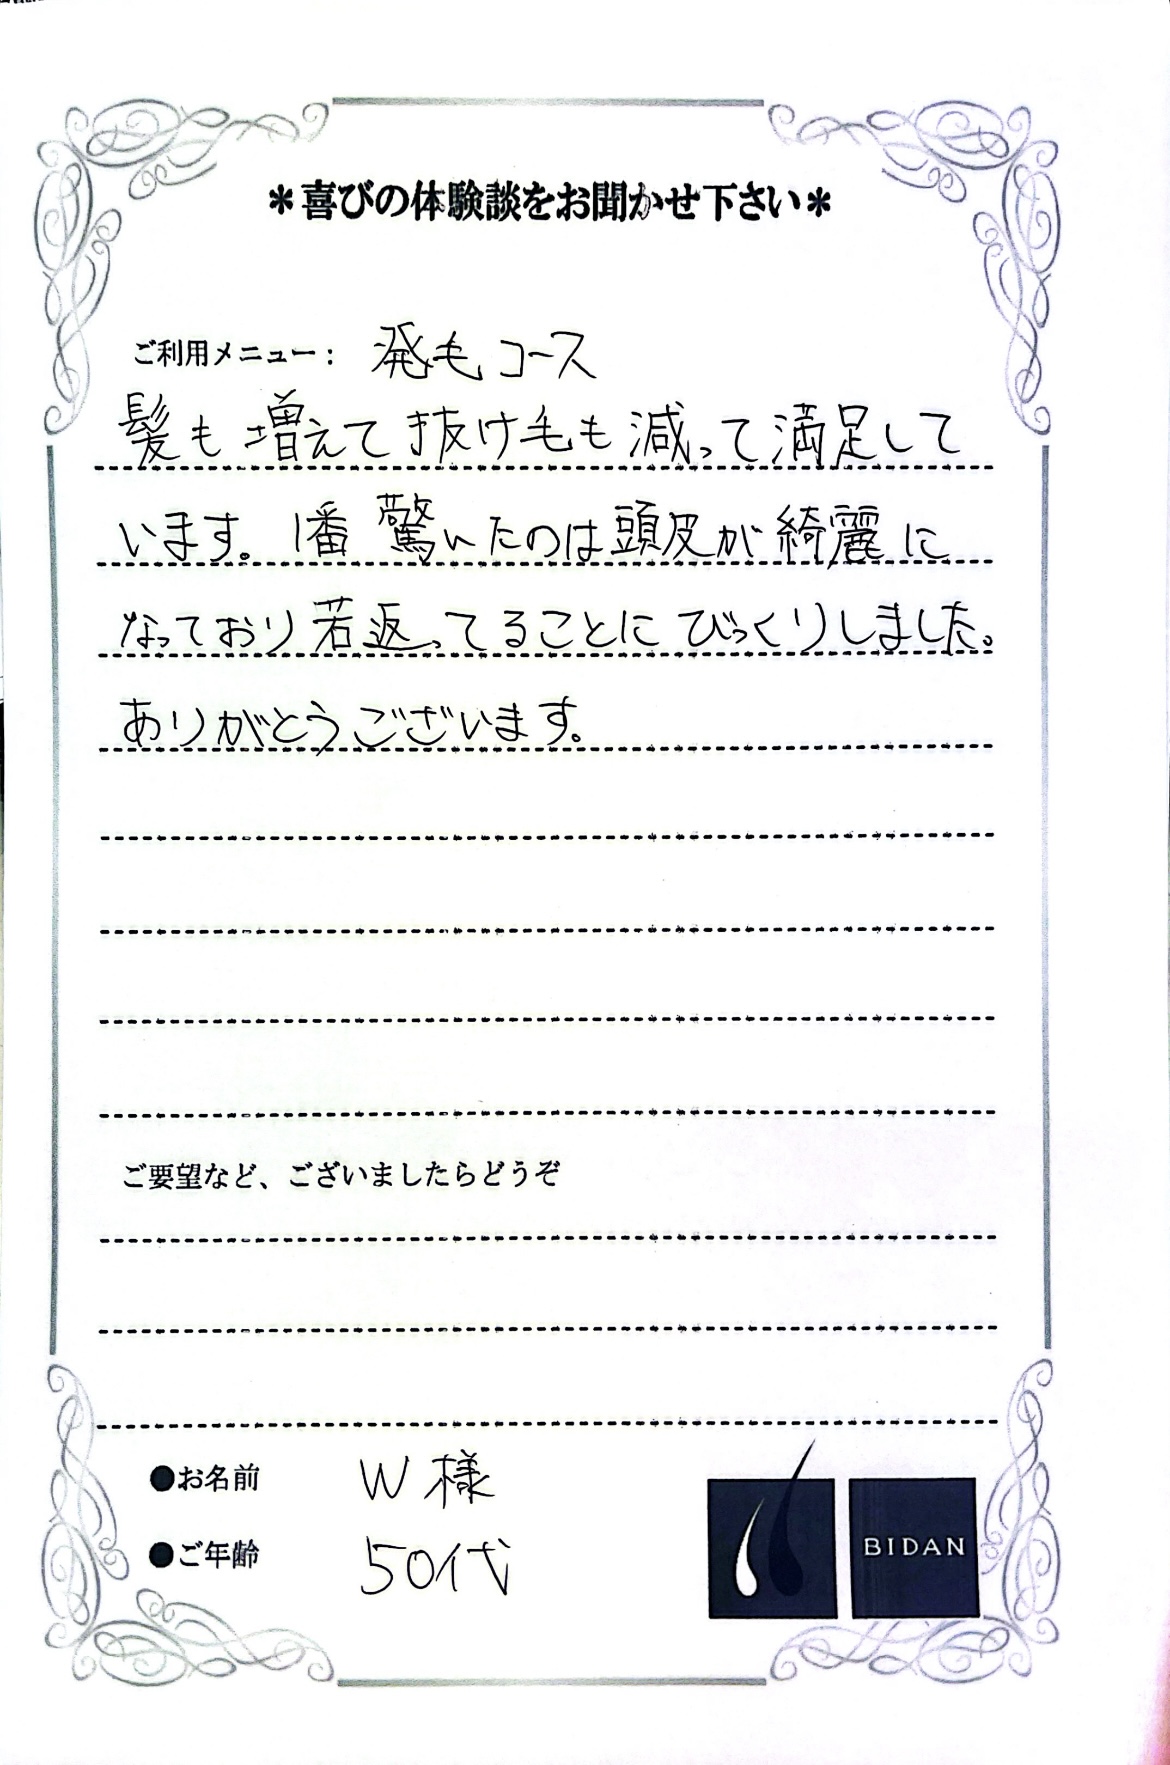 ＊喜びの体験談をお聞かせ下さい＊
ご利用メニュー： 発毛コース
髪も増えて抜け毛も減って満足して
います。1番驚いたのは頭皮が綺麗に
なっており若返ってることにびっくりしました。
ありがとうございます。
ご要望など、ございましたらどうぞ
●お名前 W様
●ご年齢 50代
BIDAN